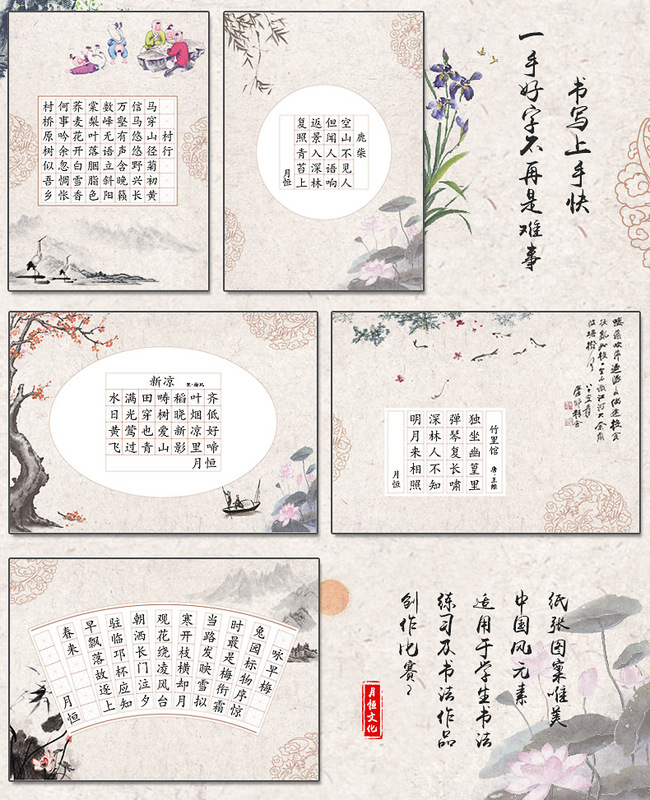 村行
马穿山径菊初黄
信马悠悠野兴长
万壑有声含晚籁
数峰无语立斜阳
棠梨叶落胭脂色
荞麦花开白雪香
何事吟余忽惆怅
村桥原树似吾乡
鹿柴
空山不见人
但闻人语响
返景入深林
复照青苔上
月恒
书写上手快
一手好字不再是难事
新凉
宋·徐玑
水满田畴稻叶齐
日光穿树晓烟低
黄莺也爱新凉好
飞过青山影里啼
月恒
竹里馆
唐 王维
独坐幽篁里
弹琴复长啸
深林人不知
明月来相照
月恒
咏早梅
兔园标物序惊
时最是梅衔霜
当路发映雪拟
寒开枝横却月
观花绕凌风台
朝洒长门泣夕
驻临邛杯应知
早飘落故逐上
春来
月恒
纸张图案唯美
中国风元素
适用于学生书法
练习及书法作品
创作比赛
月恒文化